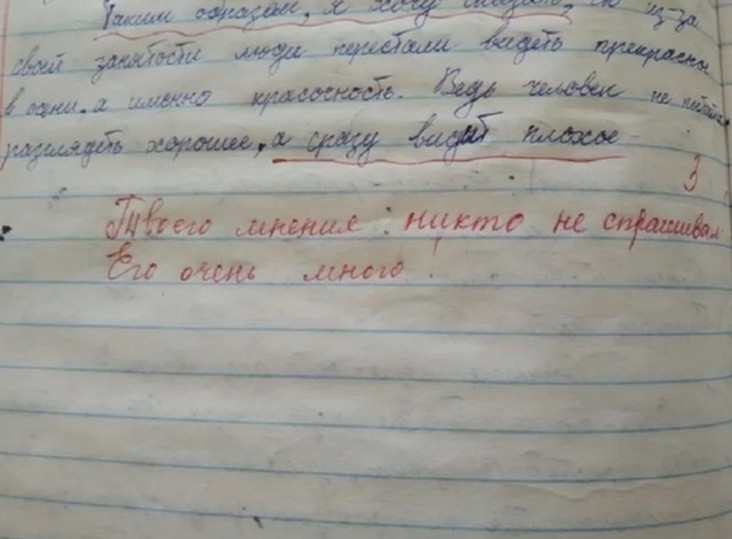 Таким образом, я хочу сказать, что из-за
своей занятости люди перестали видеть прекрасны
в одни, а именно красочность. Ведь человек не
разглядеть хорошее, а сразу видит плохое
3
Твоего мнения никто не спрашивал
Его очень много!